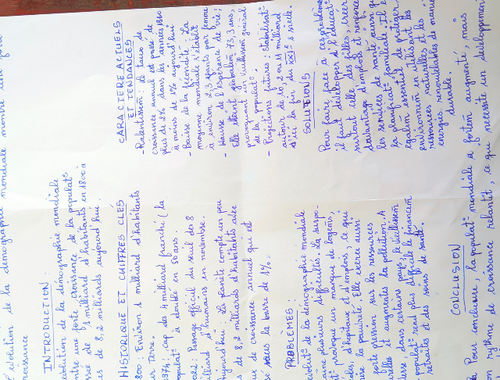 évolution de la démographie mondiale montre une forte
croissance
INTRODUCTION:
évolution de la démographie mondiale
montre une forte croissance de la populat°
passée de 1 milliard d'habitants en 1800 à
plus de 8,2 milliards aujourd'hui.
HISTORIQUE ET CHIFFRES CLÉS
1800 Environ 1 milliard d'habitants
sur Terre.
1974: cap des 4 milliard franchi (la
populat° a doublé en 50 ans.
2022: Passage officiel du seuil des 8
milliard d'humains en novembre.
Aujourd'hui: La planète compte un peu
plus de 8,2 milliards d'habitants avec
un taux de croissance annuel qui est
passé sous la barre de 1%.
PROBLEMES:
de la démographie mondiale
plusieurs difficultés. La surpo-
provoque un manque de logement,
d'écoles, d'hopitaux et d'emplois, ce qui
la pauvreté. Elle exerce aussi
forte pression sur les ressources
et augmente la pollution. A
dans certains pays, le vieillissem
populat° rend plus difficile le financem
retraites et des soins de santé.
CARACTERE ACTUELS
ET TENDANCES
- Ralentissement du taux de
croissance annuel est passé de
plus de 2% dans les années 1960
à moins de 1% aujourd'hui
- Baisse de la fécondité: La
moyenne mondiale s'établit
à environ 2,3 enfants par femme
- Hausse de l'espérance de vie:
Elle atteint globalem 73,3 ans,
provoquant un vieillissem global
de la populat°.
- Projections futures: stabilisat°
autour de 10,2 ou 10 milliard
d'ici la fin du XXI° siècle.
SOLUTIONS
Pour faire face à ces problèmes,
il faut développer l'éducat°
surtout celle des filles, créer
davantage d'emplois et renforcer
les services de santé ainsi que
la planificat° familiale. Il
également essentiel de protéger
environnem en utilisant les
ressources naturelles et les
énergies renouvelables de manière
durable.
CONCLUSION
Pour conclure, la populat° mondiale a fortem augmenté, mais
son rythme de croissance ralentit, ce qui nécessite un développem